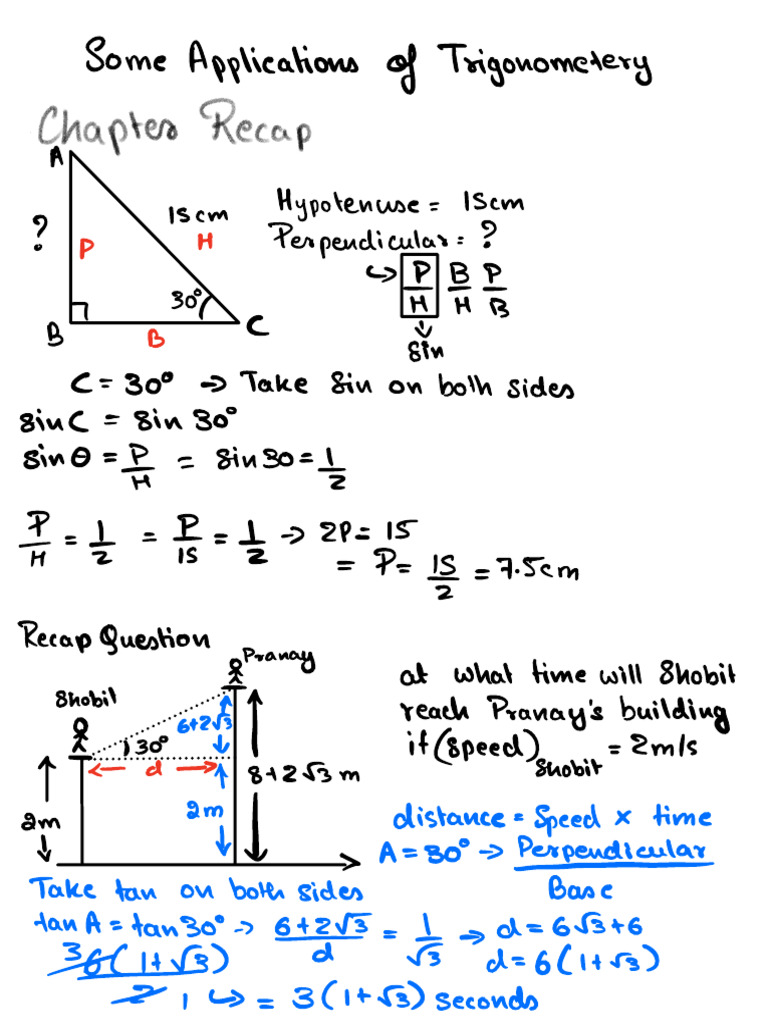 Some Applications of Trigonometery
Chapter Recap
A
15cm
H
?
P
30°
B
B
C
Hypotenuse = 15cm
Perpendicular = ?
↳ P/H B/H P/B
↓
Sin
C = 30° → Take Sin on both sides
sinC = Sin 30°
sin θ = P/H = Sin30 = 1/2
P/H = 1/2 = P/15 = 1/2 → 2P = 15
= P = 15/2 = 7.5cm
Recap Question
Pranay
Shobit
6+2√3
30°
d
8+2√3 m
2m
2m
at what time will Shobit
reach Pranay's building
if (speed)Shobit = 2m/s
distance = Speed × time
A = 30° → Perpendicular/Base
Take tan on both sides
tan A = tan 30° → 6+2√3/d = 1/√3 → d = 6√3+6
d = 6(1+√3)
3 6(1+√3)/2 1 ↳ = 3(1+√3) seconds